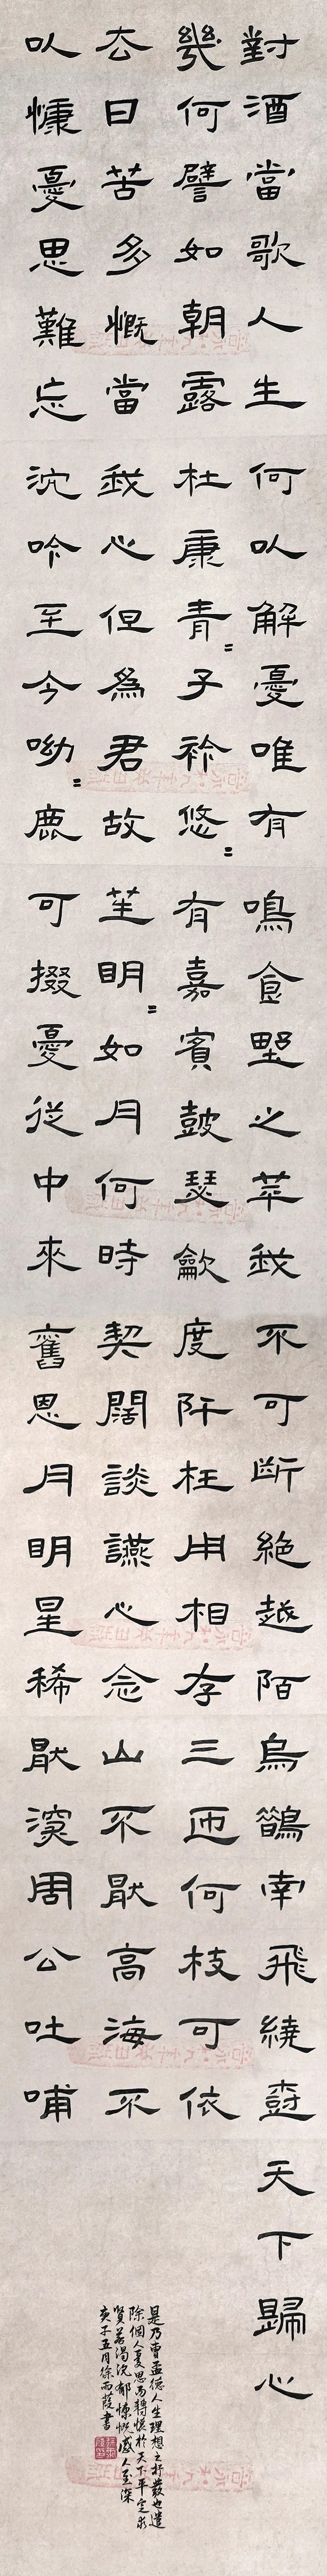 對酒當歌人生
幾何譬如朝露
去日苦多慨當
以慷憂思難忘
何以解憂唯有
杜康青=子衿悠=
我心但為君故
沈吟至今呦=鹿
鳴食野之苹我
有嘉賓鼓瑟龡
笙明=如月何時
可掇憂從中來
不可断絕越陌
度阡枉用相存
契闊談讌心念
舊恩月明星稀
烏鵲南飛繞樹
三匝何枝可依
山不猒高海不
猒深周公吐哺
天下歸心
是乃曹孟德人生理想之抒發也遣
除個人憂思而轉懷於天下平定求
賢若渴沈郁慷慨感人至深
庚子五月徐雨葭書